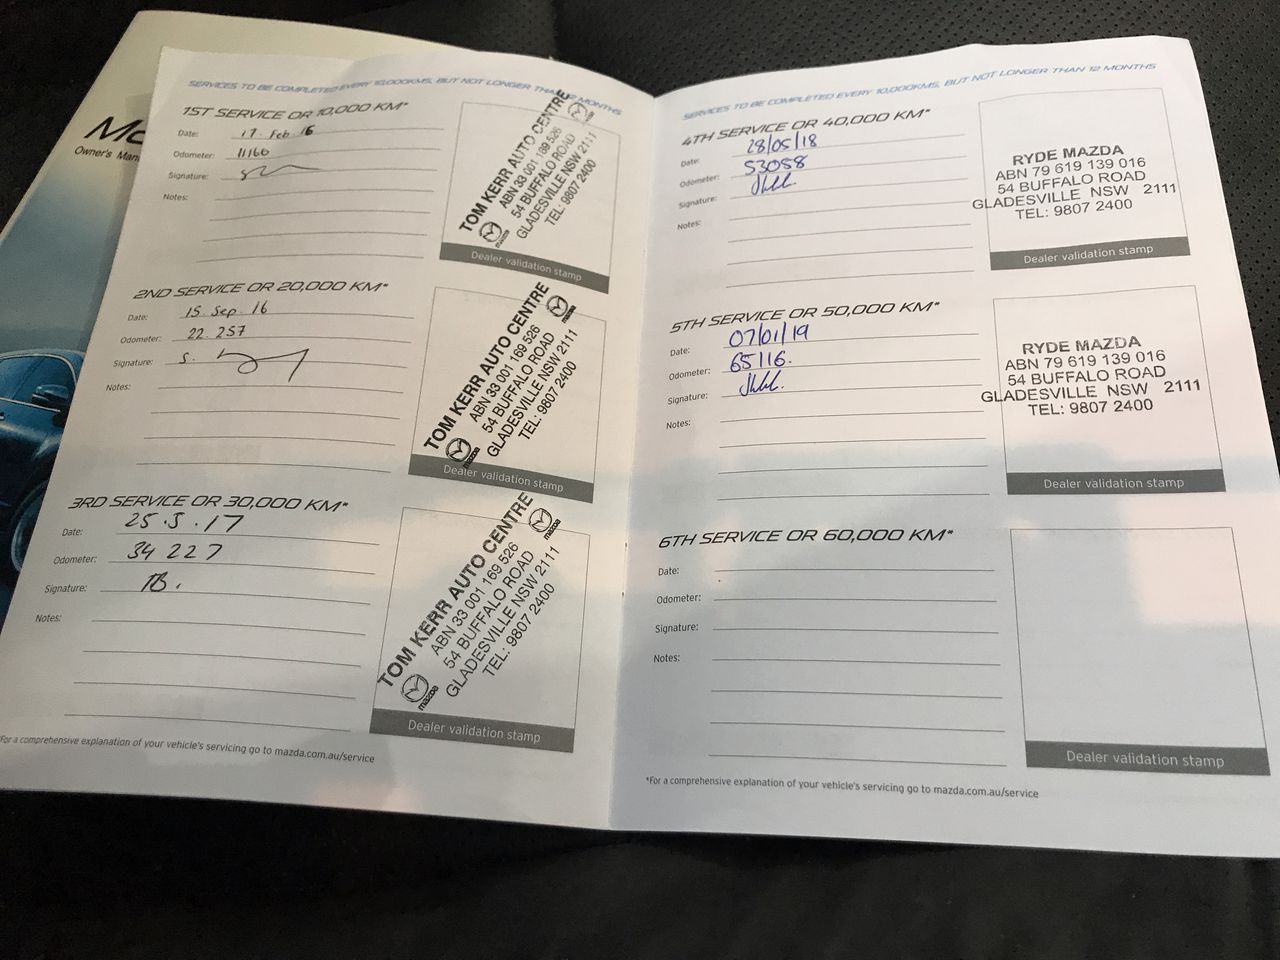 Owner's Man
SERVICES TO BE COMPLETED EVERY 10,000KMS, BUT NOT LONGER THAN 12 MONTHS
1ST SERVICE OR 10,000 KM*
Date: 17. Feb 16
Odometer: 11160
Signature:
Notes:
TOM KERR AUTO CENTRE
ABN 33 001 169 526
54 BUFFALO ROAD
GLADESVILLE NSW 2111
TEL: 9807 2400
mazda
Dealer validation stamp
2ND SERVICE OR 20,000 KM*
Date: 15. Sep. 16
Odometer: 22.257
Signature:
Notes:
TOM KERR AUTO CENTRE
ABN 33 001 169 526
54 BUFFALO ROAD
GLADESVILLE NSW 2111
TEL: 9807 2400
mazda
Dealer validation stamp
3RD SERVICE OR 30,000 KM*
Date: 25.5.17
Odometer: 34 227
Signature:
Notes:
TOM KERR AUTO CENTRE
ABN 33 001 169 526
54 BUFFALO ROAD
GLADESVILLE NSW 2111
TEL: 9807 2400
mazda
Dealer validation stamp
For a comprehensive explanation of your vehicle's servicing go to mazda.com.au/service
SERVICES TO BE COMPLETED EVERY 10,000KMS, BUT NOT LONGER THAN 12 MONTHS
4TH SERVICE OR 40,000 KM*
Date: 28/05/18
Odometer: 53058
Signature:
Notes:
RYDE MAZDA
ABN 79 619 139 016
54 BUFFALO ROAD
GLADESVILLE NSW 2111
TEL: 9807 2400
Dealer validation stamp
5TH SERVICE OR 50,000 KM*
Date: 07/01/19
Odometer: 65116.
Signature:
Notes:
RYDE MAZDA
ABN 79 619 139 016
54 BUFFALO ROAD
GLADESVILLE NSW 2111
TEL: 9807 2400
Dealer validation stamp
6TH SERVICE OR 60,000 KM*
Date:
Odometer:
Signature:
Notes:
Dealer validation stamp
*For a comprehensive explanation of your vehicle's servicing go to mazda.com.au/service